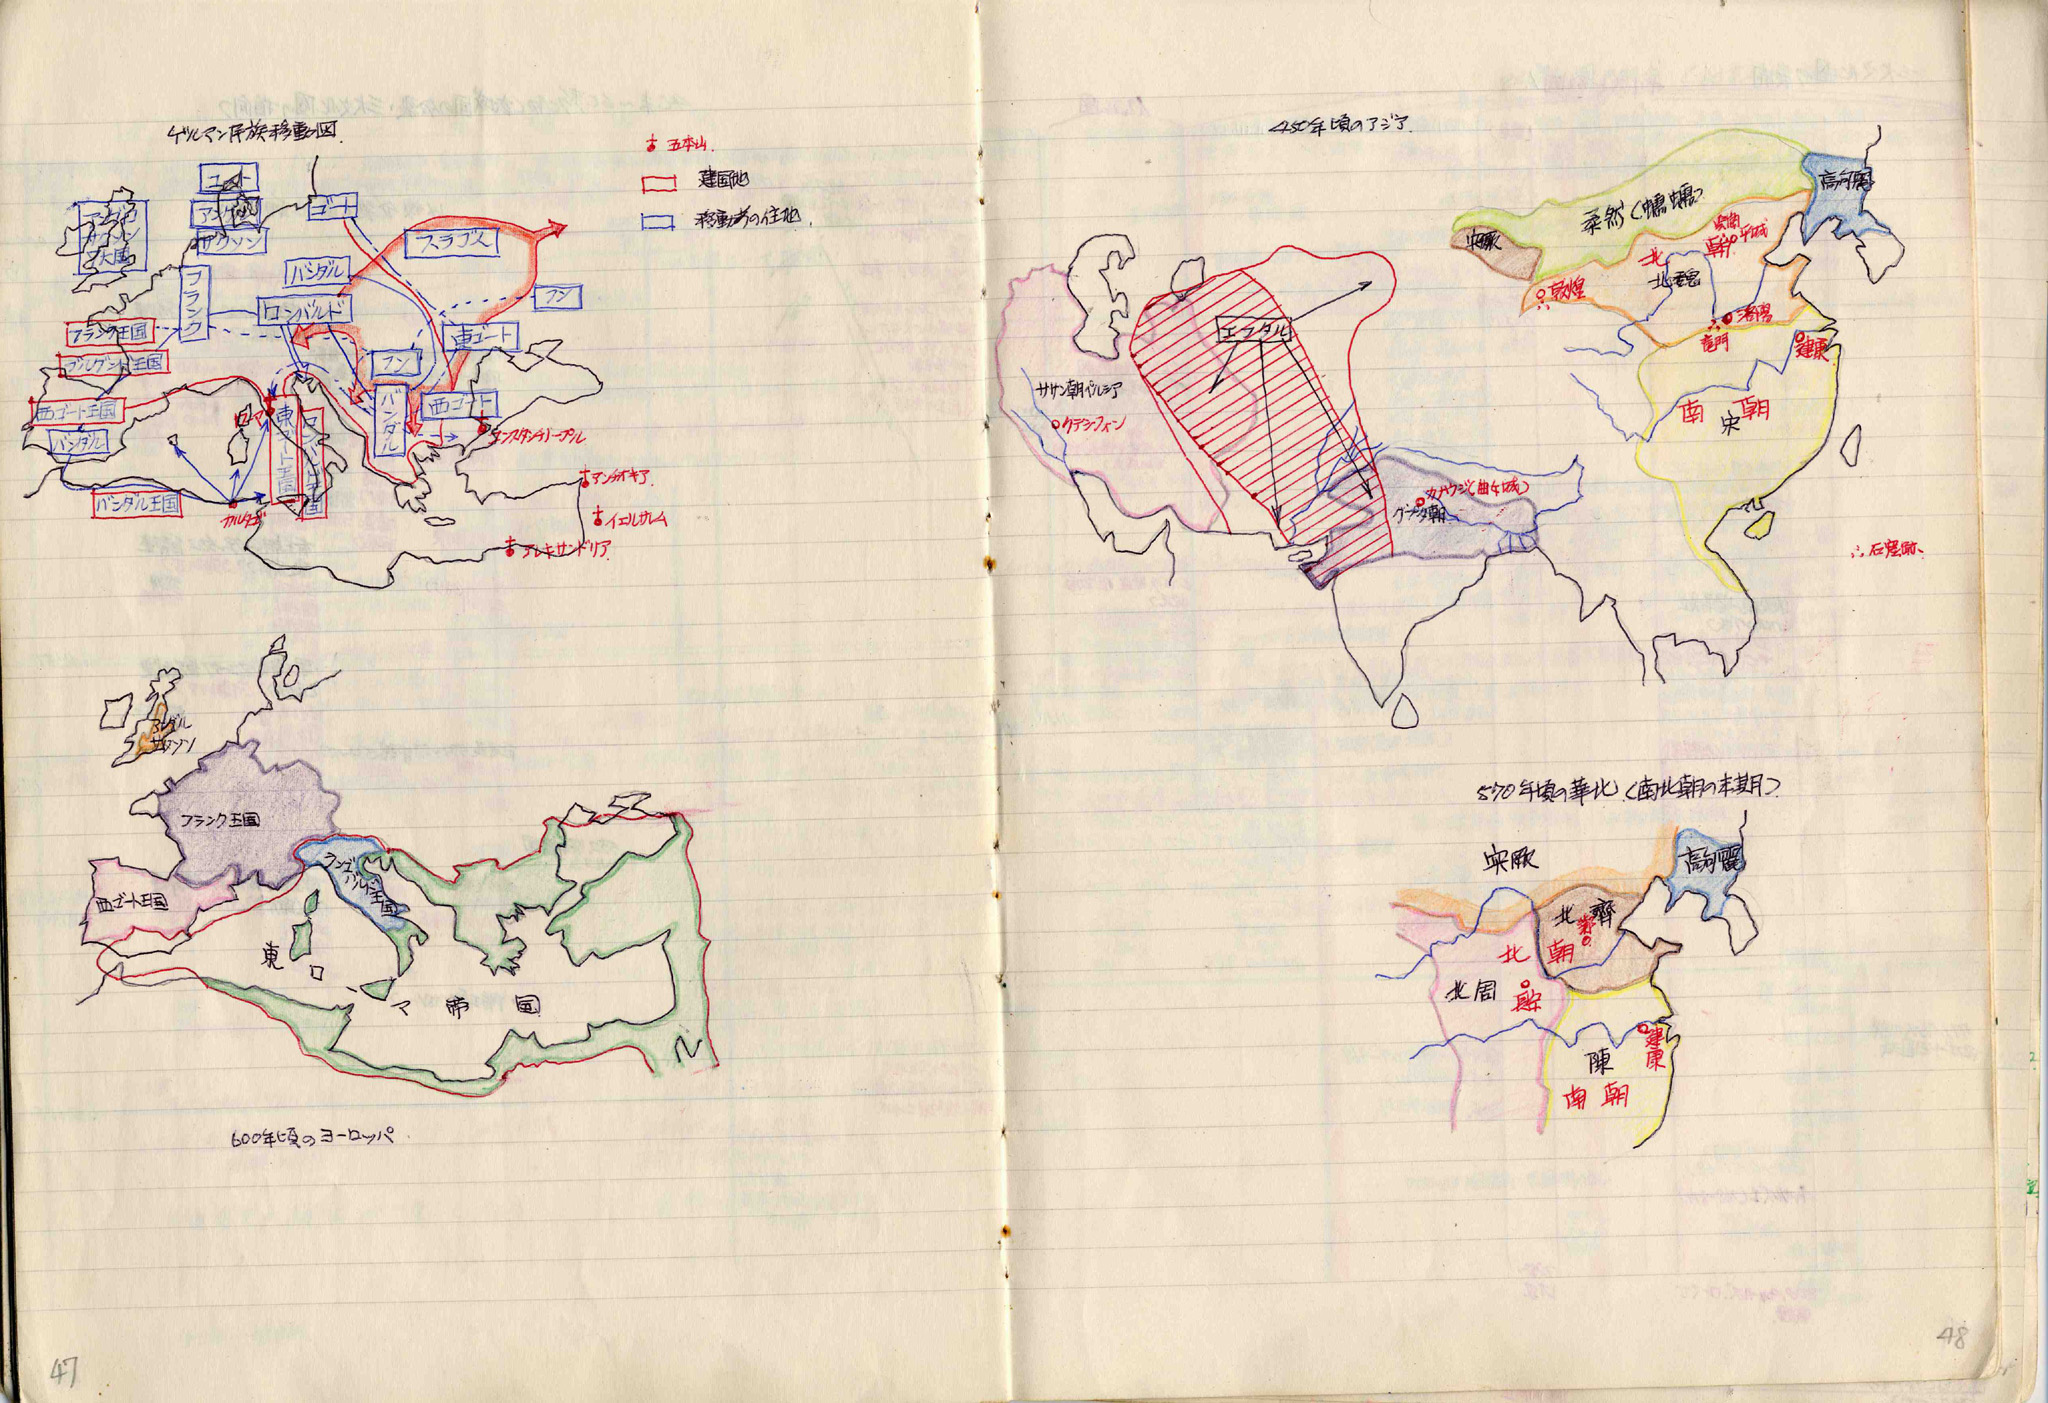 ゲルマン民族移動図
五本山
建国地
移動者の住地
ゴート
アングル
サクソン
アングロ
サクソン
七大国
ゴート
スラブ人
フランク
バンダル
ロンバルド
フン
フン
東ゴート
フランク王国
ブルグンド王国
西ゴート王国
バンダル
バンダル
西ゴート
ローマ
東ゴート王国
ロンバルド王国
コンスタンチノープル
バンダル王国
カルタゴ
アンチオキア
イエルサレム
アレキサンドリア
アングル
サクソン
フランク王国
ランゴバルド王国
西ゴート王国
東ローマ帝国
600年頃のヨーロッパ
47
450年頃のアジア
柔然(蠕蠕)
高句麗
突厥
平城
北朝
北魏
敦煌
洛陽
竜門
建康
南朝
宋
エフタル
ササン朝ペルシア
クテシフォン
カナウジ(曲女城)
グプタ朝
石窟跡
570年頃の華北(南北朝の末期)
突厥
高句麗
北齊
北朝
北周
長安
建康
陳
南朝
48